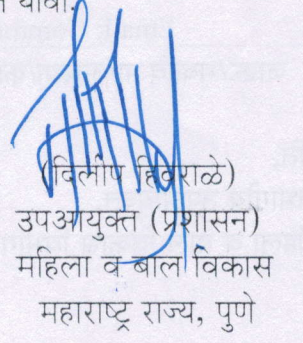 यावी.
(दिलीप हिवराळे)
उपआयुक्त (प्रशासन)
महिला व बाल विकास
महाराष्ट्र राज्य, पुणे